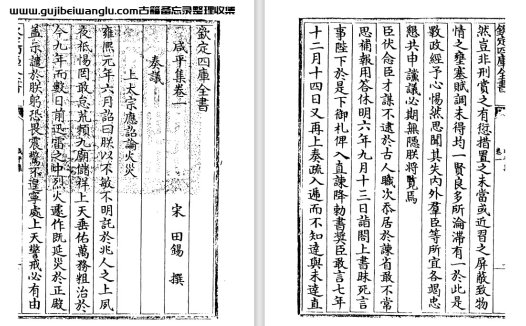 www.gujibeiwanglu.com古籍备忘录整理收集
欽定四庫全書
咸平集卷一
宋 田錫 撰
奏議
上太宗應詔論火災
雍熙元年六月詔曰朕以不敏不明託於兆人之上夙
夜祗惕罔敢怠荒頼九廟儲祥上天垂佑萬務粗治於
今九年而數日前迅雷之中烈火遽作既延災於正殿
蓋示譴於朕躬恐畏震驚不遑寧處上天警戒必有由
然豈非刑賞之有愆措置之未當或近習之屏蔽致物
情之壅塞賦調未得均一賢良多所淪滯有一於此是
斁政經予心惕然思聞其失内外羣臣等所宜各竭忠
懇共申讜議必期無隱朕將覽焉
臣伏念臣才謀不逮於古人職次忝居於諫省敢不常
思補報用答休明六年九月十三日詣閤上書昧死言
事陛下於是下御札俾入直諫降勅書奬臣敢言七年
十二月十四日又再上奏疏入遞而不知達與未達直